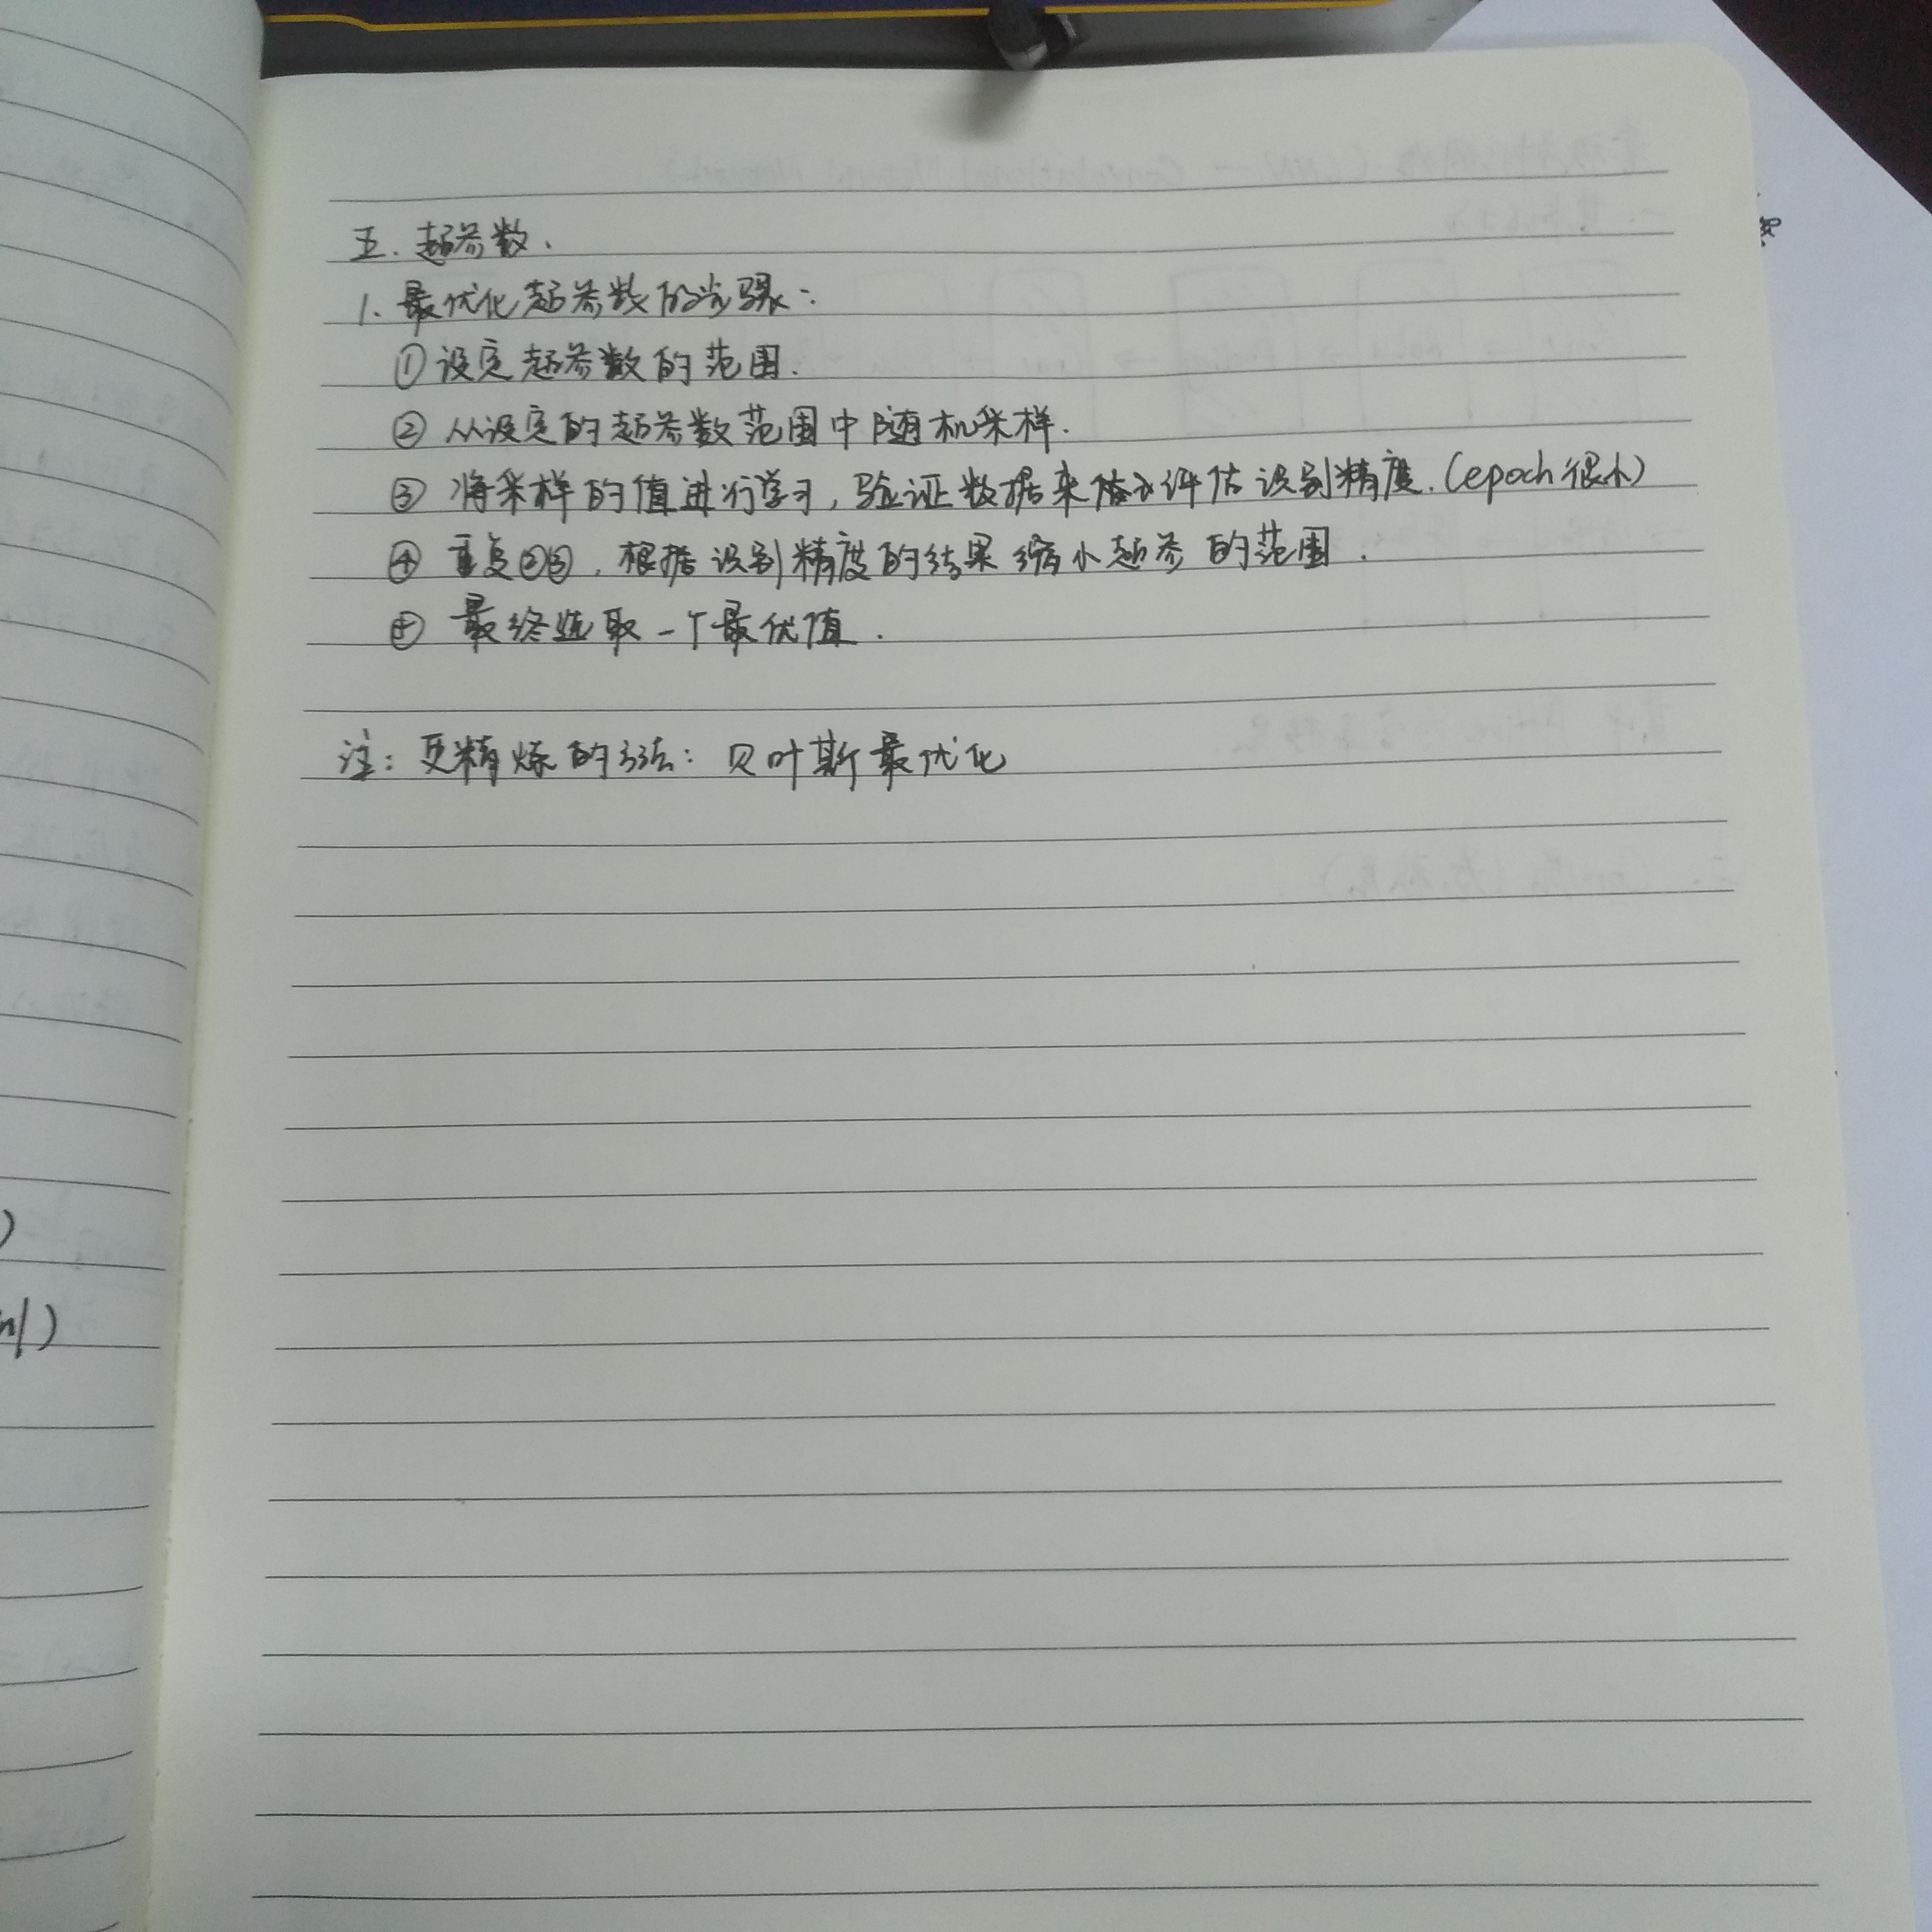 五.超参数.
1.最优化超参数的步骤:
①设定超参数的范围.
②从设定的超参数范围中随机采样.
③将采样的值进行学习,验证数据来评估识别精度.(epoch很小)
④重复②③,根据识别精度的结果缩小超参的范围.
⑤最终选取一个最优值.
注:更精炼的方法:贝叶斯最优化